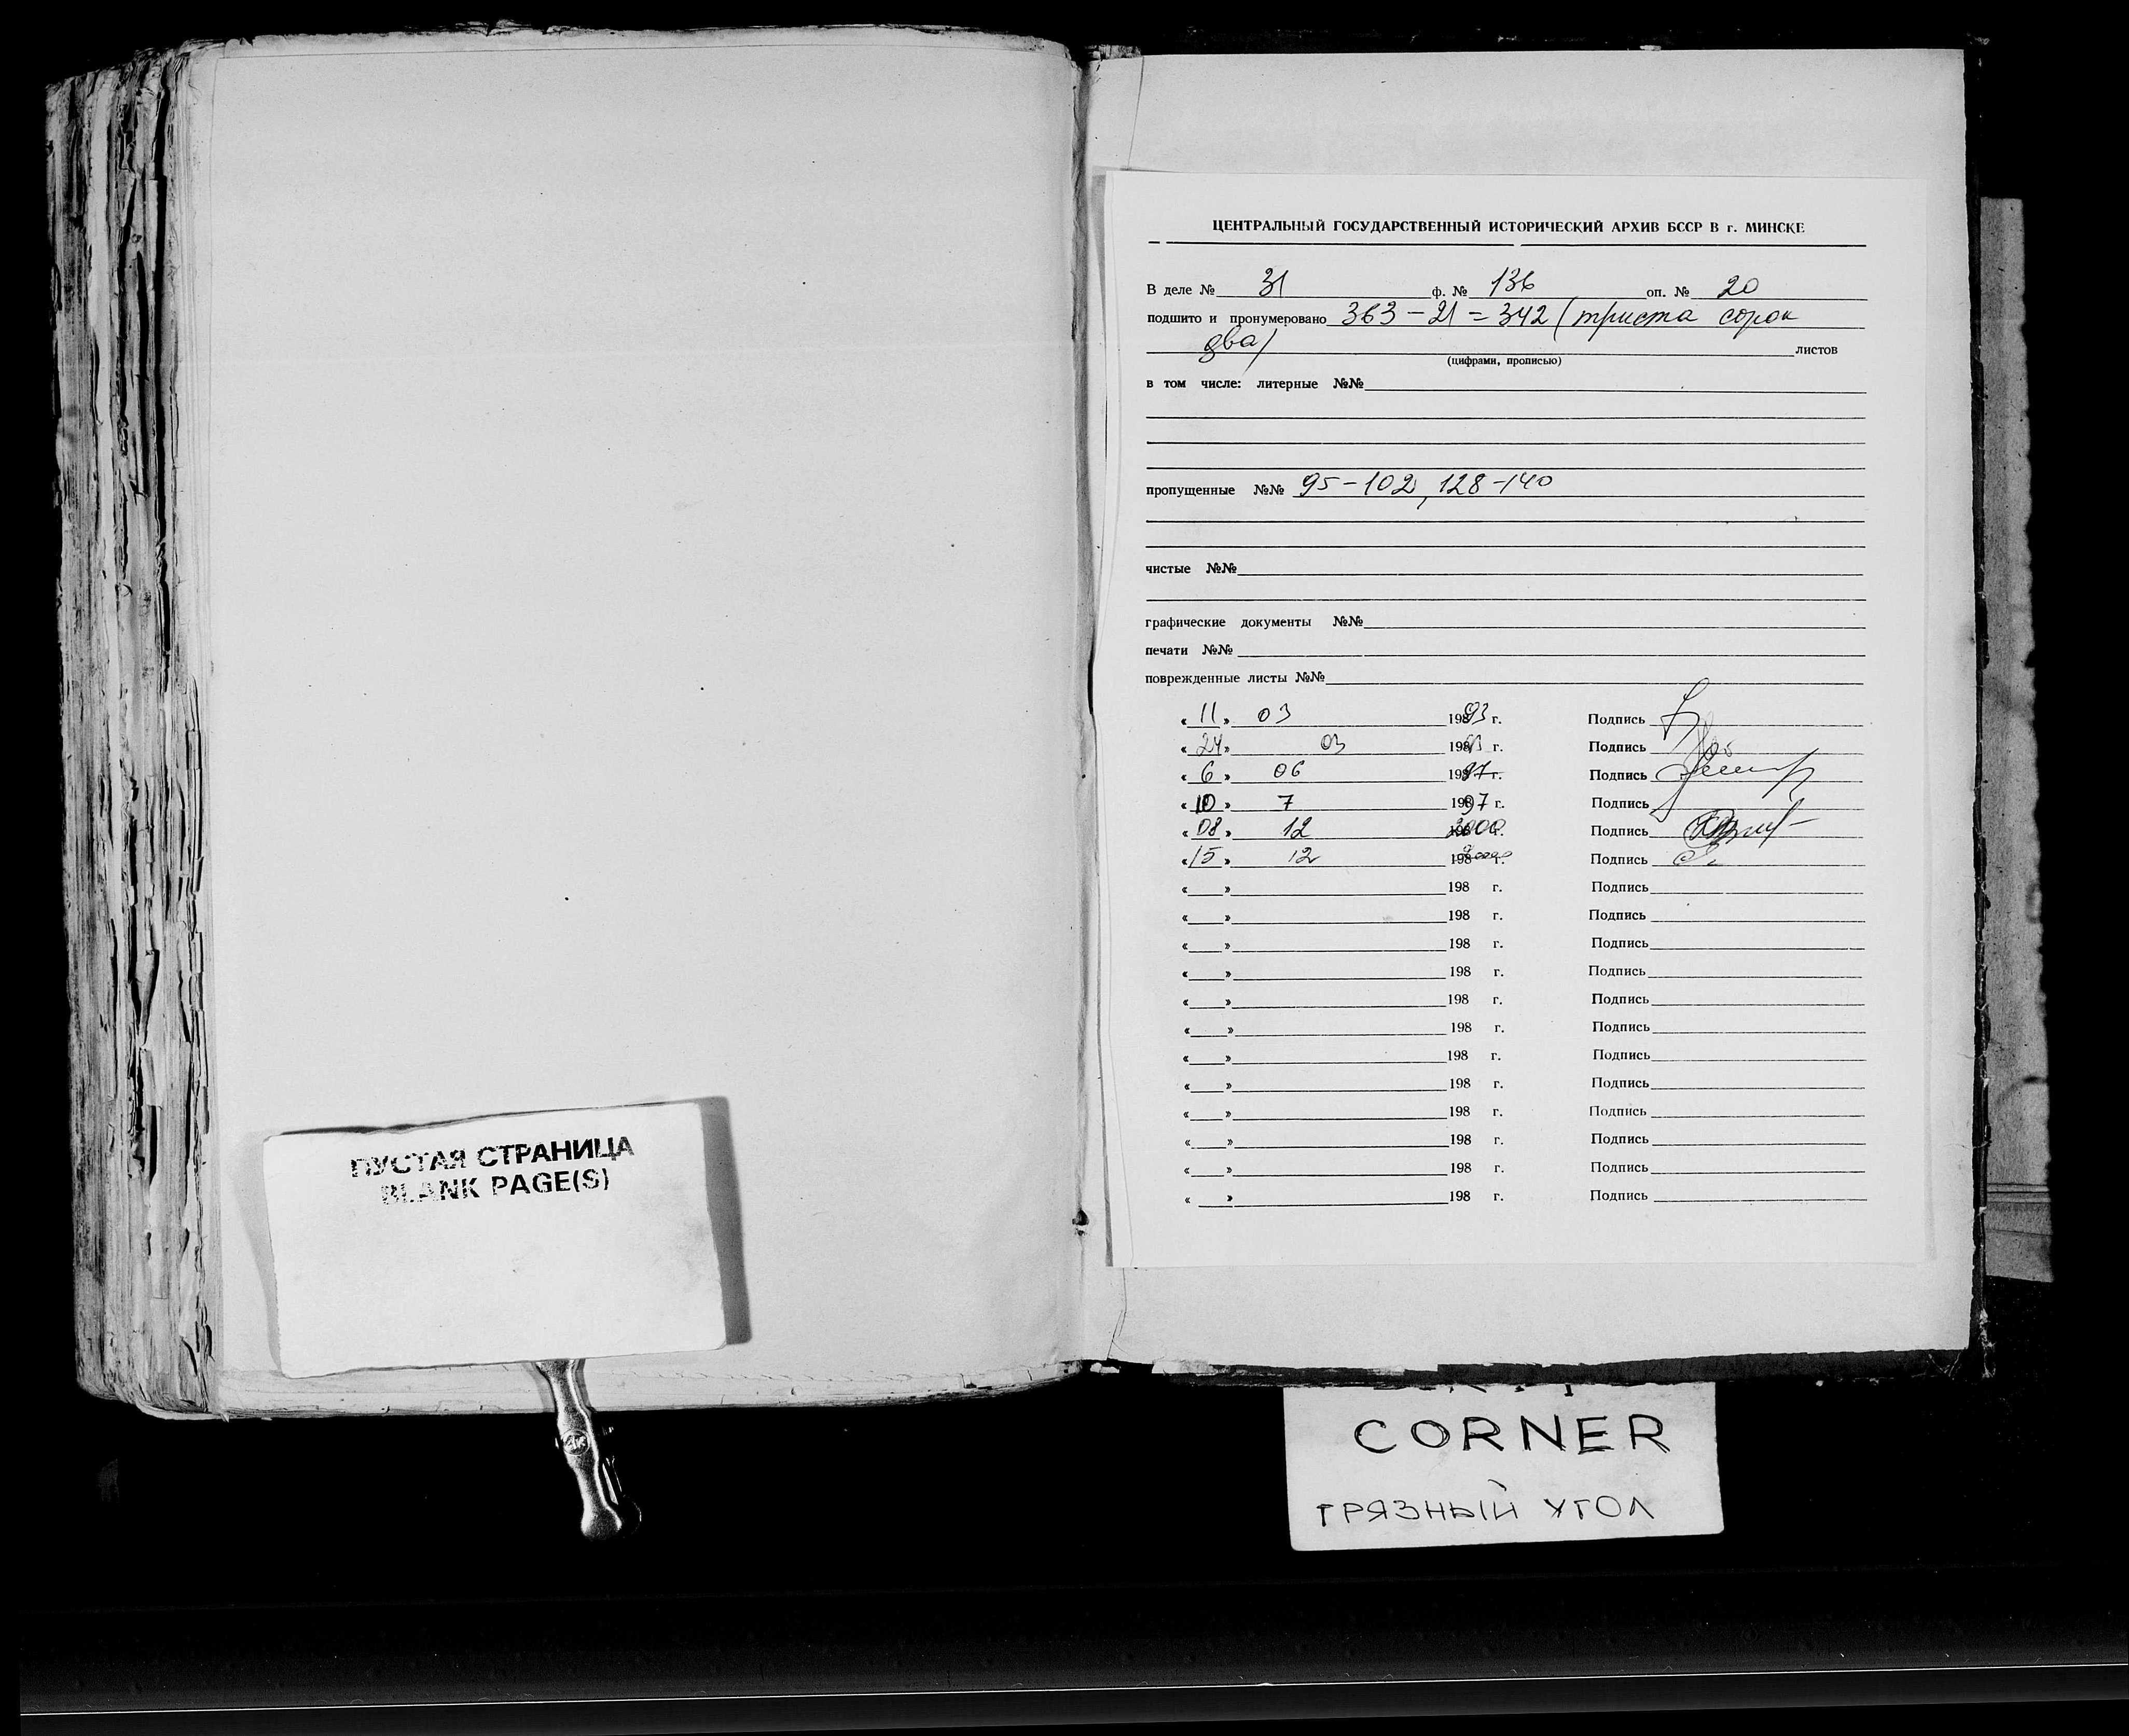 ПУСТАЯ СТРАНИЦА
BLANK PAGE(S)
ЦЕНТРАЛЬНЫЙ ГОСУДАРСТВЕННЫЙ ИСТОРИЧЕСКИЙ АРХИВ БССР В г. МИНСКЕ
В деле № 31 ф. № 136 оп. № 20
подшито и пронумеровано 363 - 21 = 342 (триста сорок
два) листов
(цифрами, прописью)
в том числе: литерные №№
пропущенные №№ 95-102, 128-140
чистые №№
графические документы №№
печати №№
поврежденные листы №№
« 11 » 03 1993 г. Подпись
« 24 » 03 198 г. Подпись
« 6 » 06 1997 г. Подпись
« 10 » 7 1997 г. Подпись
« 08 » 12 2000 г. Подпись
« 15 » 12 2000 г. Подпись
« » 198 г. Подпись
« » 198 г. Подпись
« » 198 г. Подпись
« » 198 г. Подпись
« » 198 г. Подпись
« » 198 г. Подпись
« » 198 г. Подпись
« » 198 г. Подпись
« » 198 г. Подпись
« » 198 г. Подпись
« » 198 г. Подпись
« » 198 г. Подпись
CORNER
ГРЯЗНЫЙ УГОЛ